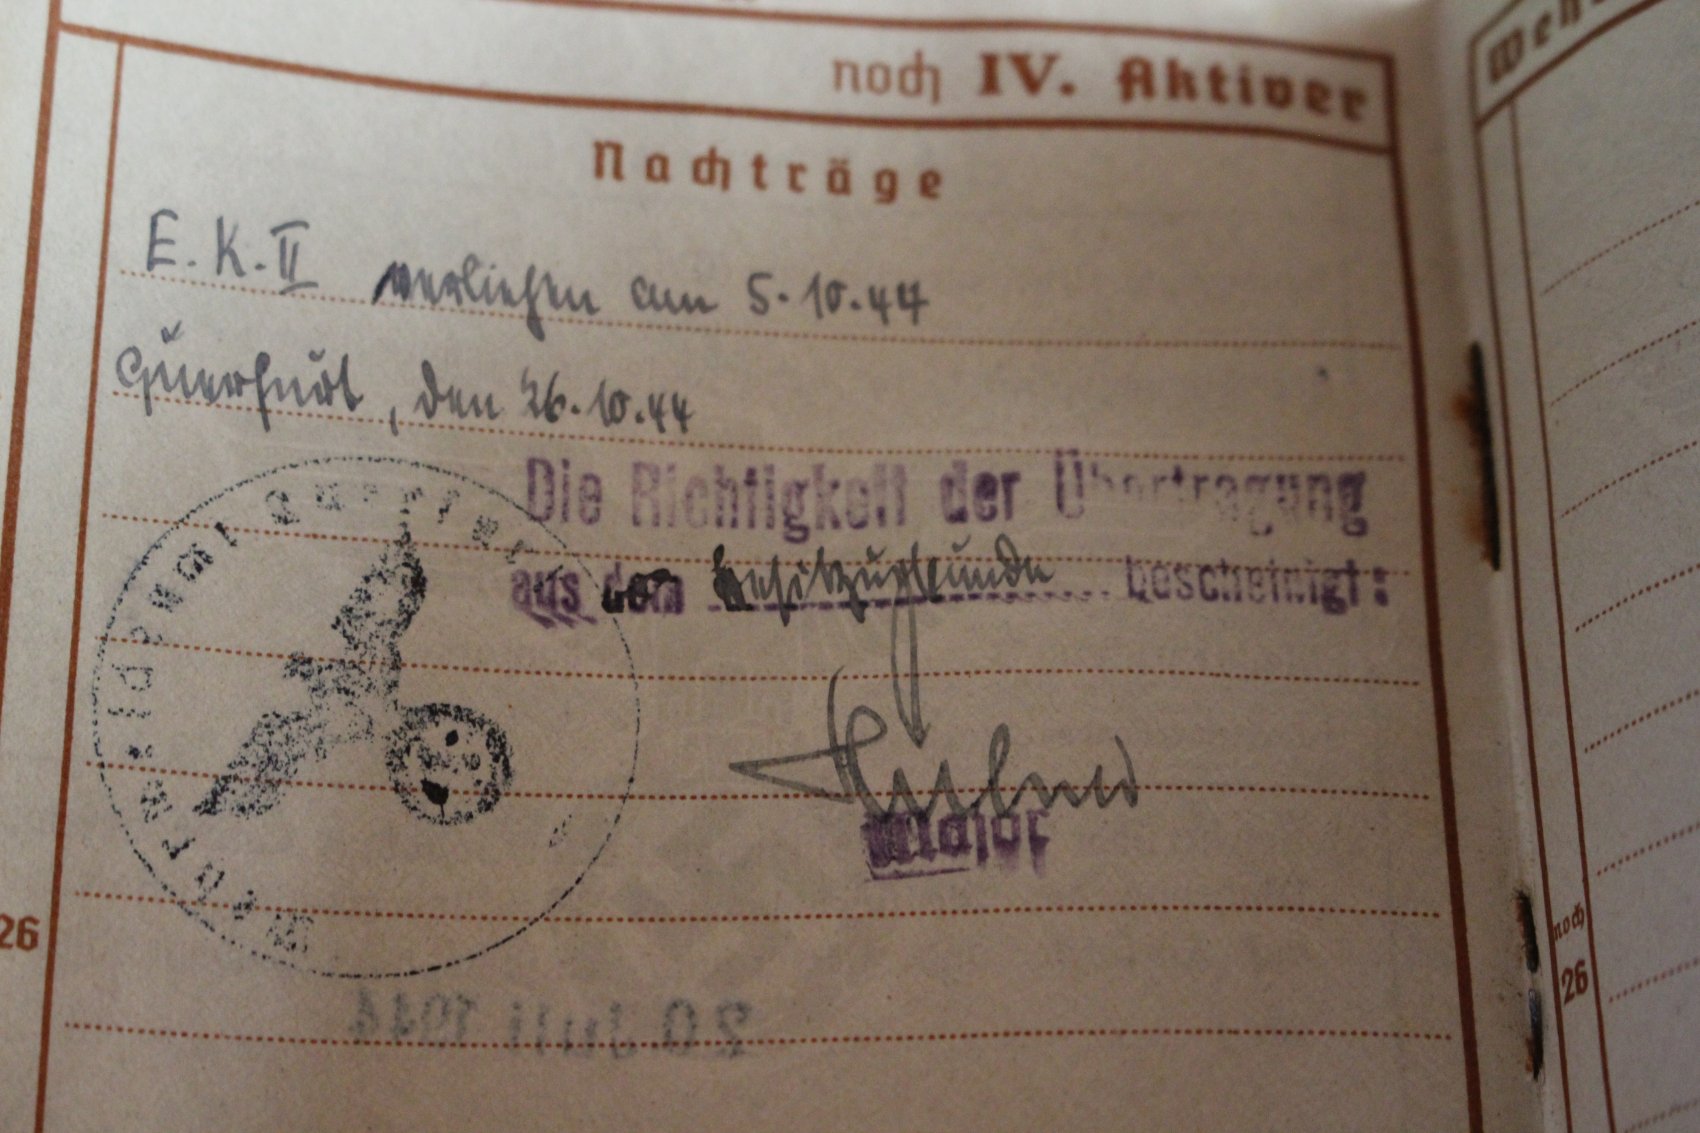 noch IV. Aktiver
Weh
Nachträge
E.K.II verliehen am 5.10.44
Querfurt, den 26.10.44
Die Richtigkeit der Übertragung
aus der Besitzurkunde bescheinigt:
Major
Wehrmeldeamt Querfurt
26
noch
26
20 Juli 1944